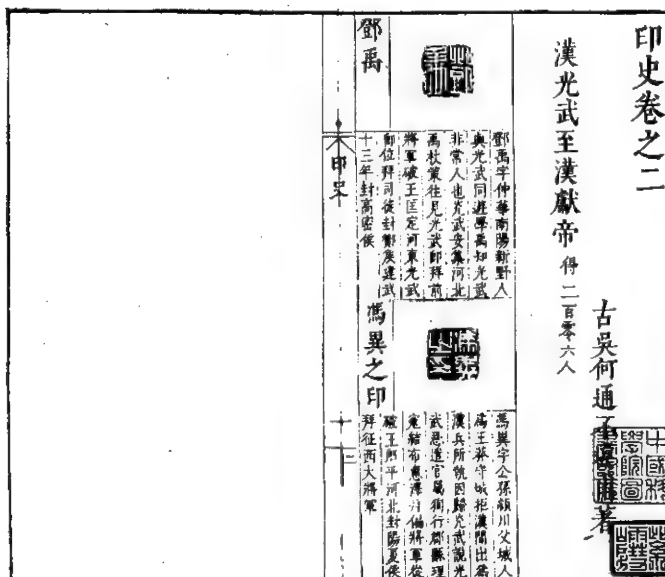 印史卷之二
古吳何通
著
漢光武至漢獻帝 得二百零六人
鄧禹字仲華南陽新野人
與光武同遊學禹知光武
非常人也光武安集河北
禹杖策往見光武即拜前
將軍破王匡定河東光武
即位拜司徒封酇侯建武
十三年封高密侯
鄧禹
馮異字公孫潁川父城人
為王莽守城拒漢間出為
漢兵所執因歸光武說光
武急遣官屬徇行郡縣理
冤結布惠澤 偏將軍從
破王郎平河北封陽夏侯
拜征西大將軍
馮異之印
印史